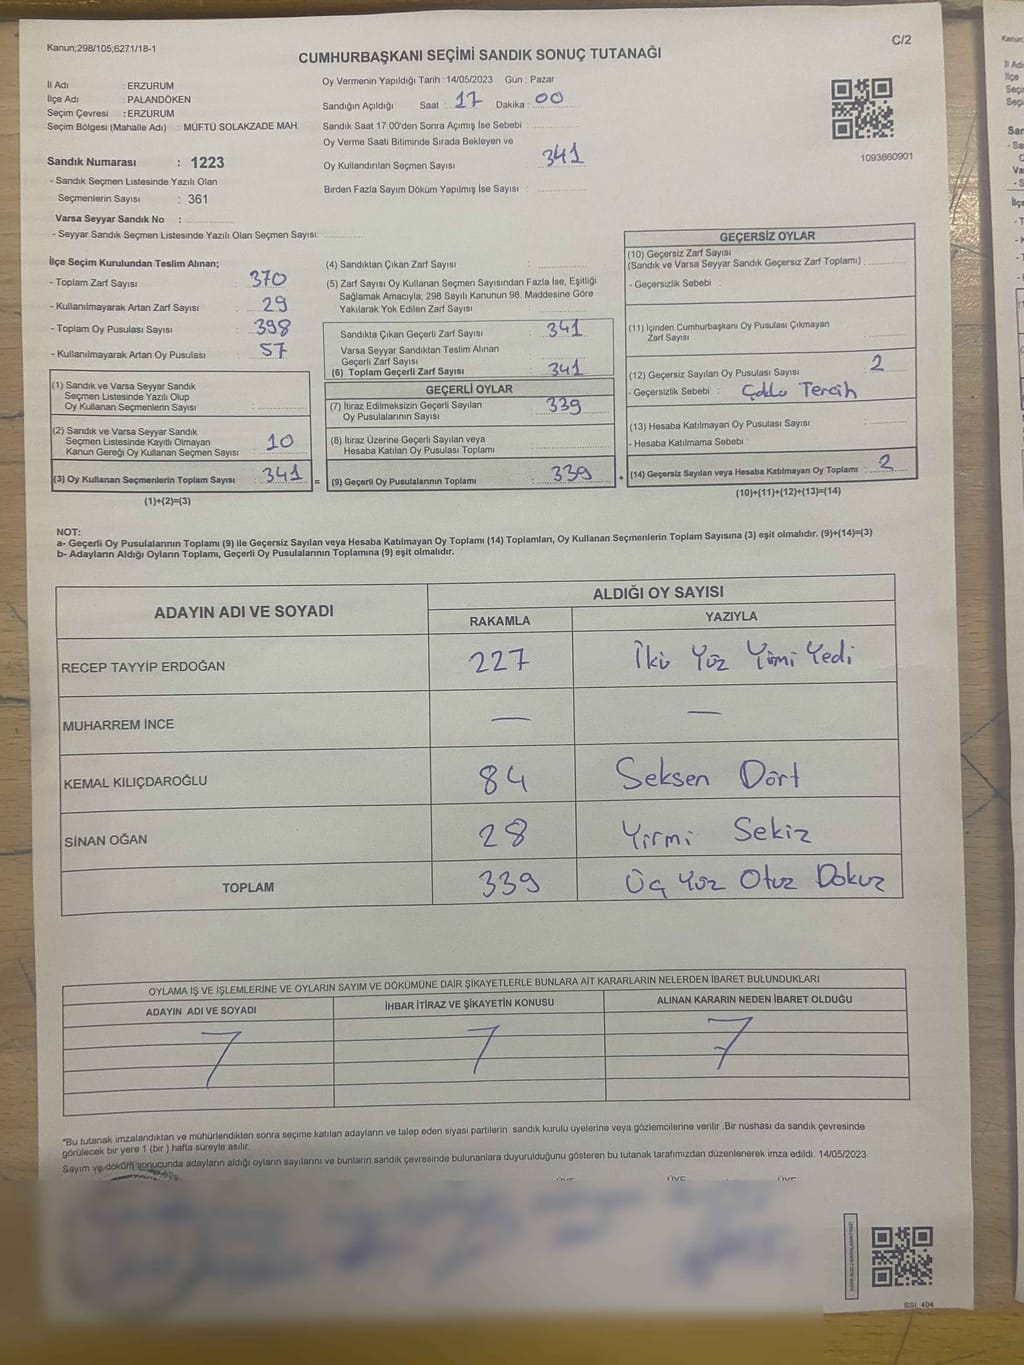 Kanun;298/105;6271/18-1
C/2
CUMHURBAŞKANI SEÇİMİ SANDIK SONUÇ TUTANAĞI
İl Adı : ERZURUM
İlçe Adı : PALANDÖKEN
Seçim Çevresi : ERZURUM
Seçim Bölgesi (Mahalle Adı) : MÜFTÜ SOLAKZADE MAH.
Sandık Numarası : 1223
- Sandık Seçmen Listesinde Yazılı Olan
Seçmenlerin Sayısı : 361
Varsa Seyyar Sandık No :
- Seyyar Sandık Seçmen Listesinde Yazılı Olan Seçmen Sayısı:
Oy Vermenin Yapıldığı Tarih : 14/05/2023 Gün : Pazar
Sandığın Açıldığı Saat : 17 Dakika : 00
Sandık Saat 17:00'den Sonra Açmış İse Sebebi :
Oy Verme Saati Bitiminde Sırada Bekleyen ve
Oy Kullandırılan Seçmen Sayısı : 341
Birden Fazla Sayım Döküm Yapılmış İse Sayısı :
1093860901
İlçe Seçim Kurulundan Teslim Alınan;
- Toplam Zarf Sayısı : 370
- Kullanılmayarak Artan Zarf Sayısı : 29
- Toplam Oy Pusulası Sayısı : 398
- Kullanılmayarak Artan Oy Pusulası : 57
(1) Sandık ve Varsa Seyyar Sandık
Seçmen Listesinde Yazılı Olup
Oy Kullanan Seçmenlerin Sayısı :
(2) Sandık ve Varsa Seyyar Sandık
Seçmen Listesinde Kayıtlı Olmayan
Kanun Gereği Oy Kullanan Seçmen Sayısı : 10
(3) Oy Kullanan Seçmenlerin Toplam Sayısı : 341
(1)+(2)=(3)
(4) Sandıktan Çıkan Zarf Sayısı :
(5) Zarf Sayısı Oy Kullanan Seçmen Sayısından Fazla İse, Eşitliği
Sağlamak Amacıyla, 298 Sayılı Kanunun 98. Maddesine Göre
Yakılarak Yok Edilen Zarf Sayısı :
Sandıkta Çıkan Geçerli Zarf Sayısı : 341
Varsa Seyyar Sandıktan Teslim Alınan
Geçerli Zarf Sayısı :
(6) Toplam Geçerli Zarf Sayısı : 341
GEÇERLİ OYLAR
(7) İtiraz Edilmeksizin Geçerli Sayılan
Oy Pusulalarının Sayısı : 339
(8) İtiraz Üzerine Geçerli Sayılan veya
Hesaba Katılan Oy Pusulası Toplamı :
= (9) Geçerli Oy Pusulalarının Toplamı : 339
GEÇERSİZ OYLAR
(10) Geçersiz Zarf Sayısı
(Sandık ve Varsa Seyyar Sandık Geçersiz Zarf Toplamı) :
- Geçersizlik Sebebi :
(11) İçinden Cumhurbaşkanı Oy Pusulası Çıkmayan
Zarf Sayısı :
(12) Geçersiz Sayılan Oy Pusulası Sayısı : 2
- Geçersizlik Sebebi : Çoklu Tercih
(13) Hesaba Katılmayan Oy Pusulası Sayısı :
- Hesaba Katılmama Sebebi :
+ (14) Geçersiz Sayılan veya Hesaba Katılmayan Oy Toplamı : 2
(10)+(11)+(12)+(13)=(14)
NOT:
a- Geçerli Oy Pusulalarının Toplamı (9) ile Geçersiz Sayılan veya Hesaba Katılmayan Oy Toplamı (14) Toplamları, Oy Kullanan Seçmenlerin Toplam Sayısına (3) eşit olmalıdır. (9)+(14)=(3)
b- Adayların Aldığı Oyların Toplamı, Geçerli Oy Pusulalarının Toplamına (9) eşit olmalıdır.
ADAYIN ADI VE SOYADI
ALDIĞI OY SAYISI
RAKAMLA YAZIYLA
RECEP TAYYİP ERDOĞAN 227 İki Yüz Yirmi Yedi
MUHARREM İNCE — —
KEMAL KILIÇDAROĞLU 84 Seksen Dört
SİNAN OĞAN 28 Yirmi Sekiz
TOPLAM 339 Üç Yüz Otuz Dokuz
OYLAMA İŞ VE İŞLEMLERİNE VE OYLARIN SAYIM VE DÖKÜMÜNE DAİR ŞİKAYETLERLE BUNLARA AİT KARARLARIN NELERDEN İBARET BULUNDUKLARI
ADAYIN ADI VE SOYADI İHBAR İTİRAZ VE ŞİKAYETİN KONUSU ALINAN KARARIN NEDEN İBARET OLDUĞU
*Bu tutanak imzalandıktan ve mühürlendikten sonra seçime katılan adayların ve talep eden siyasi partilerin sandık kurulu üyelerine veya gözlemcilerine verilir .Bir nüshası da sandık çevresinde
görülecek bir yere 1 (bir ) hafta süreyle asılır.
Sayım ve döküm sonucunda adayların aldığı oyların sayılarını ve bunların sandık çevresinde bulunanlara duyurulduğunu gösteren bu tutanak tarafımızdan düzenlenerek imza edildi. 14/05/2023
SSI_404